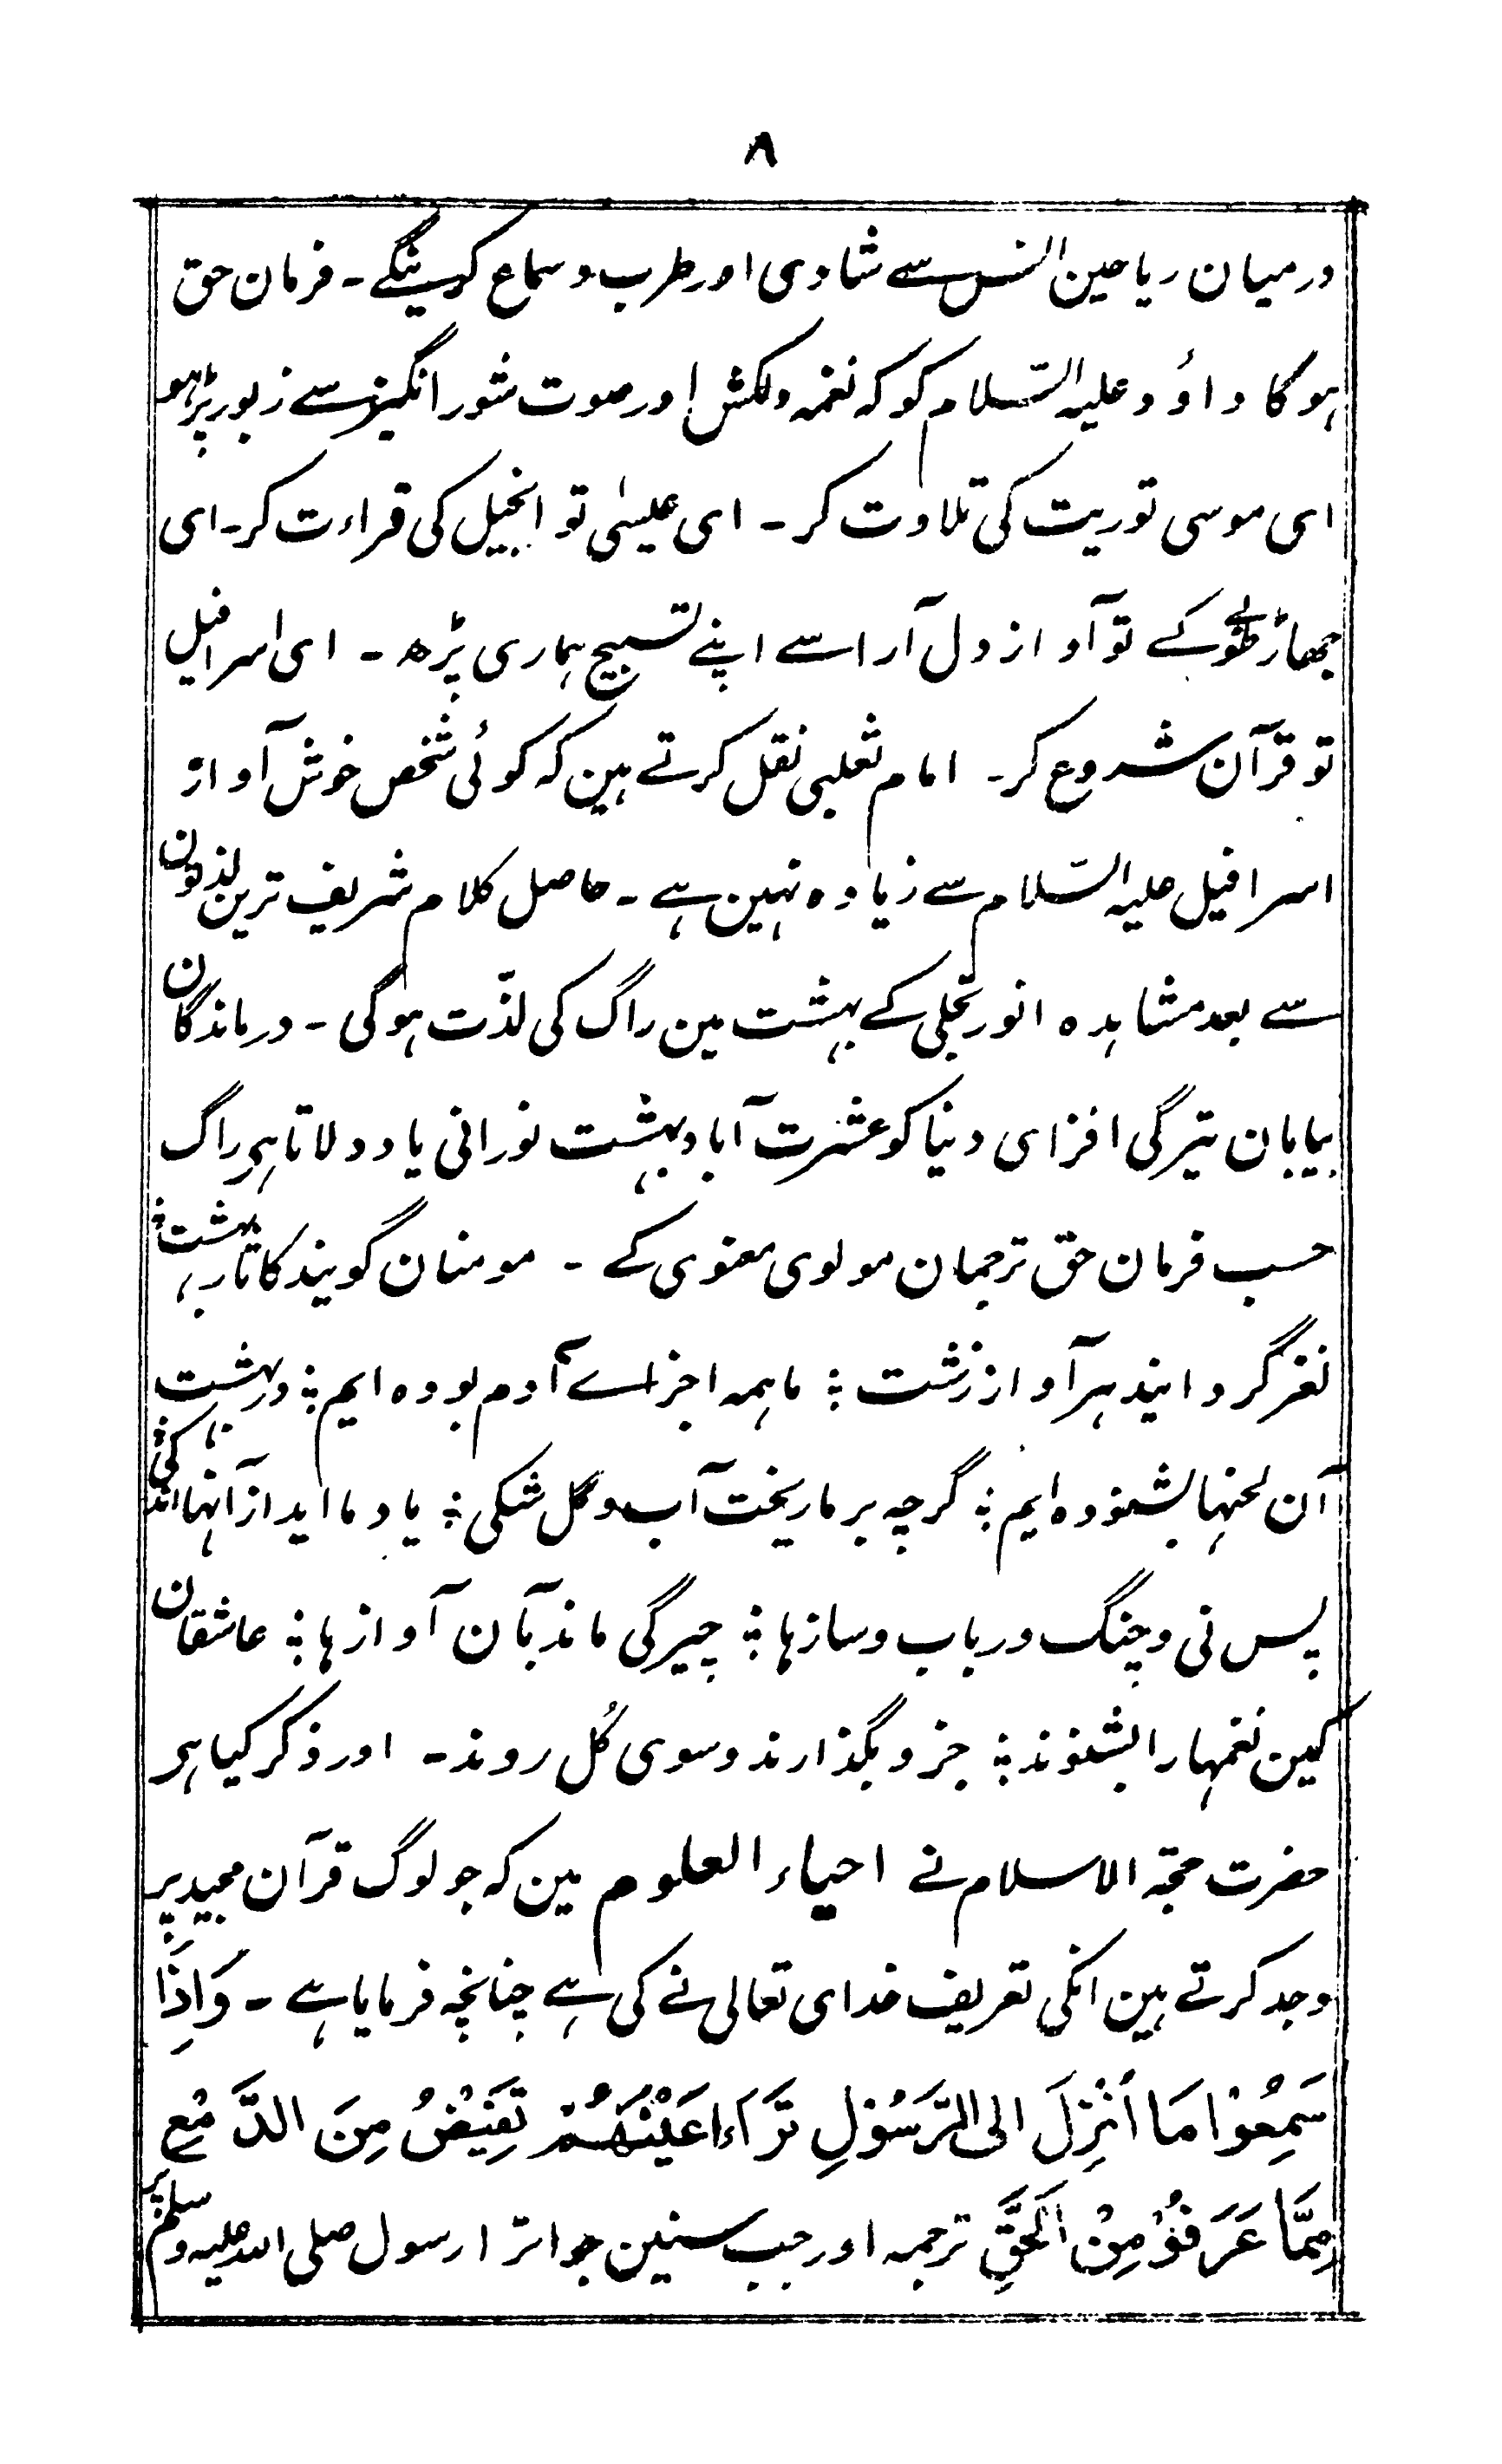 ۸
درمیان ریاحین انس سے شادی اور طرب و سماع کرینگے ۔ فرمان حق
ہوگا داؤد علیہ السّلام کو کہ نغمہ دلکش اور صوت شور انگیز سے زبور پڑہو
ای موسی توریت کی تلاوت کر ۔ ای عیسیٰ تو انجیل کی قراءت کر ۔ ای
جھاڑ طوبے کے تو آواز دل آرا سے اپنے تسبیح ہماری پڑھ ۔ ای اسرافیل
تو قرآن شروع کر ۔ امام ثعلبی نقل کرتے ہین کہ کوئی شخص خوش آواز
اسرافیل علیہ السّلام سے زیادہ نہین ہے ۔ حاصل کلام شریف ترین لذتون
سے بعد مشاہدہ انور تجلی کے بہشت مین راگ کی لذّت ہوگی ۔ درماندگان
بیابان تیرگی افزای دنیا کو عشرت آباد بہشت نورانی یاد دلاتا ہی راگ
حسب فرمان حق ترجمان مولوی معنوی کے ۔ مومنان گویند کاثار بہشت ؛
نغز گردانید ہر آواز زشت ؛ ما ہمہ اجزاے آدم بودہ ایم ؛ در بہشت
آن لحنہا بشنودہ ایم ؛ گرچہ بر ما ریخت آب و گل شکی ؛ یاد ما اید از آنہا اندکی ؛
پس نی و چنگ و رباب و سازہا ؛ چیزگی ماند بآن آوازہا ؛ عاشقان
کین نغمہا را بشنوند ؛ جزو بگذارند و سوی کُل روند ۔ اور ذکر کیا ہی
حضرت حجۃ الاسلام نے احیاء العلوم مین کہ جو لوگ قرآن مجید پر
وجد کرتے ہین انکی تعریف خدای تعالی نے کی ہے چنانچہ فرمایا ہے ۔ وَاِذَا
سَمِعُوْا مَا اُنْزِلَ الی الرَّسُوْلِ تَرَاء اعَیْنَهُمْ تَفِیْضُ مِنَ الدَّمْعِ
مِمَّا عَرَفُوْ مِنْ الْحَقِّ ترجمہ اور جب سنین جو اترا رسول صلی اللہ علیہ وسلم پر